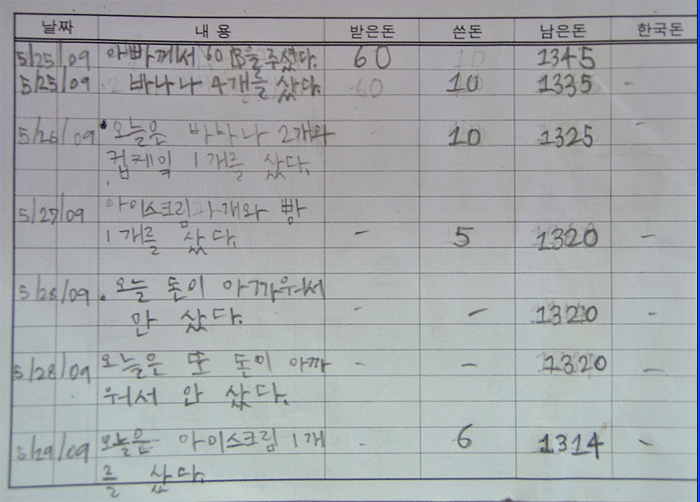 날짜 내용 받은돈 쓴돈 남은돈 한국돈
5/25/09 아빠께서 60 B을 주셨다. 60 1345
5/25/09 바나나 4개를 샀다. 10 1335 -
5/26/09 오늘은 바나나 2개와 - 10 1325 -
컵케익 1개를 샀다.
5/27/09 아이스크림 개와 빵
1개를 샀다. - 5 1320 -
5/28/09 오늘 돈이 아까워서
안 샀다. - - 1320 -
5/28/09 오늘은 또 돈이 아까 - - 1320 -
워서 안 샀다.
5/29/09 오늘은 아이스크림 1개 - 6 1314 -
를 샀다.